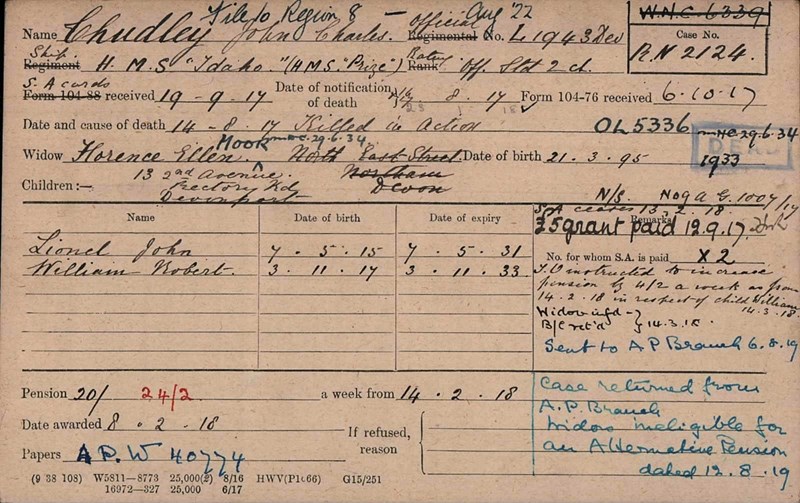 File to Region 8 - Aug '22
Name Chudley John Charles. Official Regimental No. L 1943 Dev
W.N.C. 6339
Case No.
R.N 2124.
Ship. Regiment H.M.S "Idaho." (H.M.S. "Prize") Rating Rank Off. Std 2 cl.
S.A cards
Form 104-88 received 19-9-17 Date of notification of death 8.17 Form 104-76 received 6-10-17
Date and cause of death 14-8.17 Killed in Action OL5336 29.6.34
DEAD
1933
Widow Florence Ellen HOOK 29.6.34 North East Street. Date of birth 21.3.95
13 2nd Avenue. Northam
Rectory Rd Devon
Devonport
Children:—
N/S. Nog a G.1007/17
S.A ceases 13.2.18.
Name Date of birth Date of expiry Remarks
£5 grant paid 12.9.17.
Lionel John 7.5.15 7.5.31
No. for whom S.A. is paid X2
William Robert. 3.11.17 3.11.33
I.O instructed to increase
pension by 4/2 a week as from
14.2.18 in respect of child William
14.3.18.
Widow infd -}
B/C ret'd } 14.3.18.
Sent to A P Branch 6.8.19
Pension 20/ 24/2 a week from 14.2.18
Date awarded 8.2.18
If refused, reason
Papers A.P.W 40774
Case returned from
A.P. Branch
Widow ineligible for
an Alternative Pension
dated 12.8.19
(9 38 108) W5811—8773 25,000(2) 8/16 HWV(P1566) G15/251
16972—327 25,000 6/17